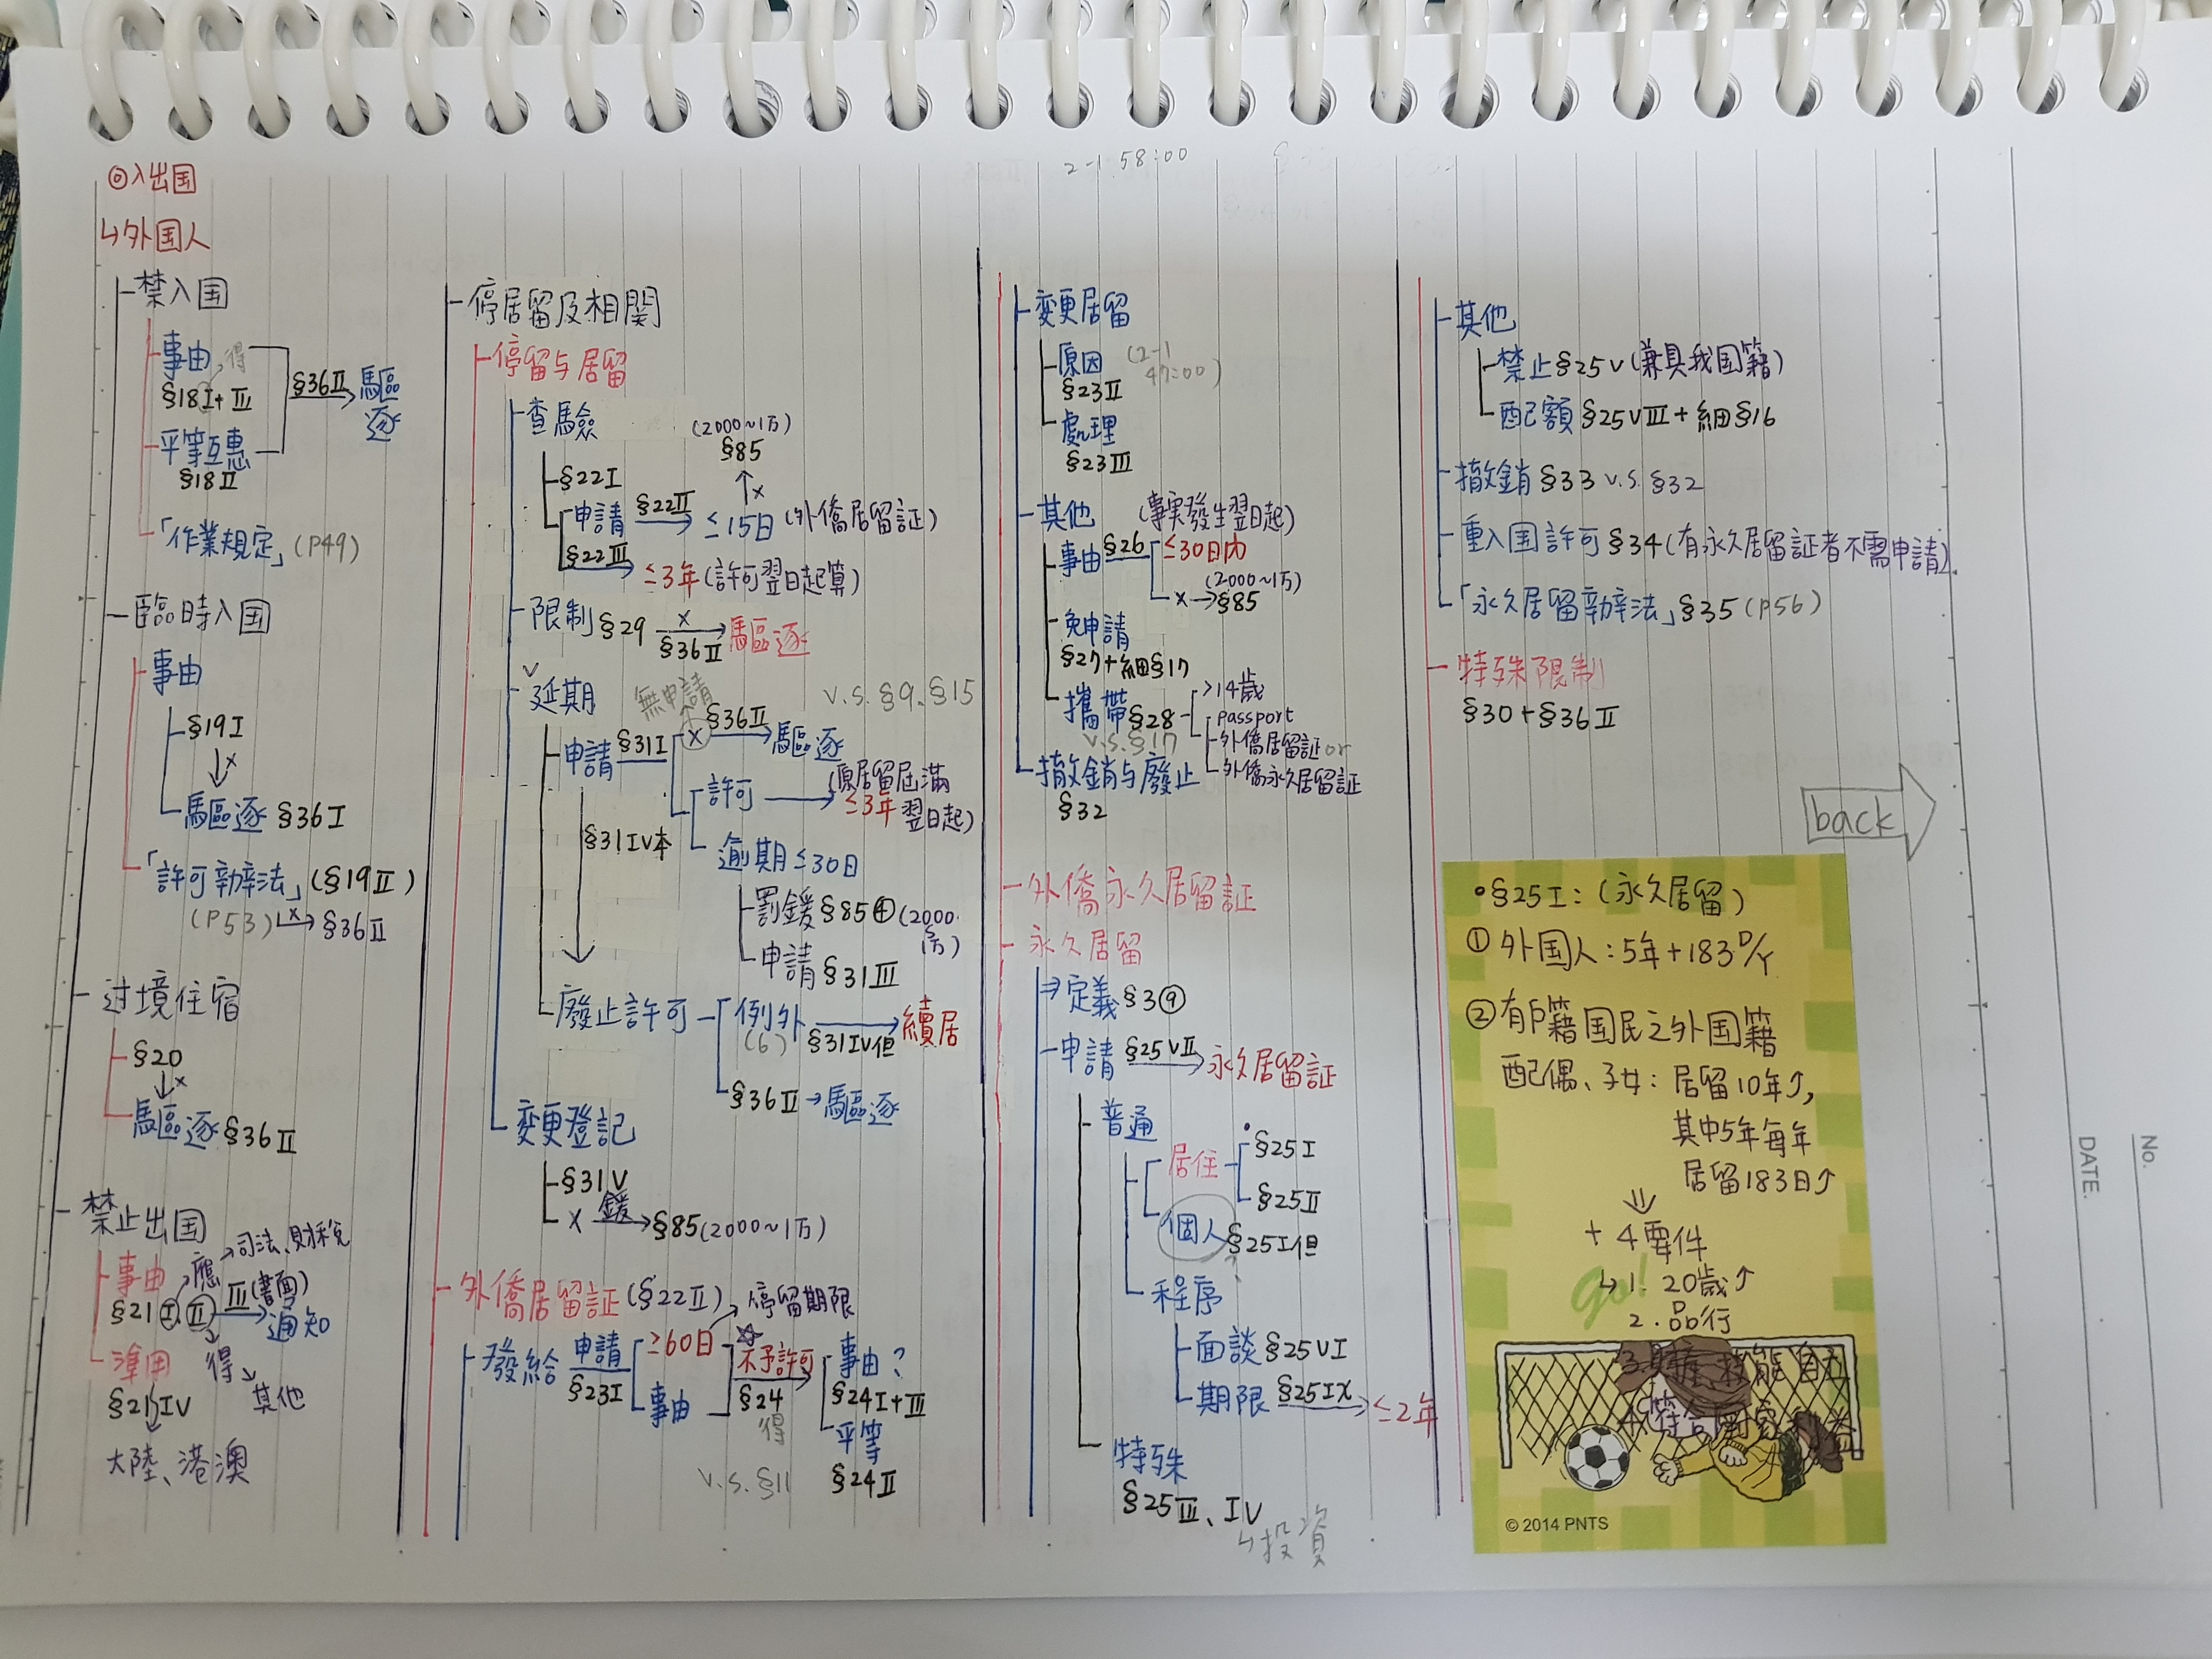 2-1 58:00
◎入出国
↳外国人
禁入国
事由
得
§18I+III
平等互惠
§18II
§36II
驅逐
「作業規定」(P49)
臨時入国
事由
§19I
x
驅逐 §36I
「許可辦法」(§19II)
(P53) x→ §36II
过境住宿
§20
x
驅逐 §36II
禁止出国
事由 應→司法、財稅
§21 I、II III(書面)→通知
得→其他
準用
§21IV
大陸、港澳
停居留及相關
停留与居留
查驗
(2000~1万)
§85
x
§22I
申請 §22II→ ≤15日 (外僑居留証)
§22III→ ≤3年 (許可翌日起算)
限制 §29 x §36II→驅逐
v
延期
無申請
v.s. §9、§15
申請 §31I
x §36II→驅逐
許可→(原居留屆滿
≤3年 翌日起)
§31IV本
逾期≤30日
罰鍰 §85④(2000~
1万)
申請 §31III
廢止許可
例外 §31IV但→續居
(6)
§36II→驅逐
變更登記
§31V
x 鍰→§85(2000~1万)
外僑居留証 (§22II)
停留期限
發給 申請 §23I
≥60日
事由
☆
不予許可
§24
得
事由?
§24I+III
平等
§24II
v.s. §11
变更居留
原因 (2-1
47:00)
§23II
處理
§23III
其他 (事実發生翌日起)
事由 §26 ≤30日內
(2000~1万)
x→§85
免申請
§27+細§17
攜帶 §28
v.s. §17
>14歲
passport
外僑居留証 or
外僑永久居留証
撤銷与廢止
§32
外僑永久居留証
永久居留
⇒定義 §3⑨
申請 §25VII→永久居留証
普通
居住
§25I
§25II
個人 §25I但
程序
面談 §25VI
期限 §25IX→ ≤2年
特殊
§25III、IV
↳投資
其他
禁止 §25V (兼具我国籍)
配額 §25VIII+細§16
撤銷 §33 v.s. §32
重入国許可 §34 (有永久居留証者不需申請)
「永久居留辦法」§35 (P56)
特殊限制
§30+§36II
back
•§25I:(永久居留)
① 外国人:5年+183D/Y
② 有戶籍国民之外国籍
配偶、子女:居留10年↑,
其中5年每年
居留183日↑
⇓
+4要件
↳1. 20歲↑
2. 品行
go!
© 2014 PNTS
No.
DATE.